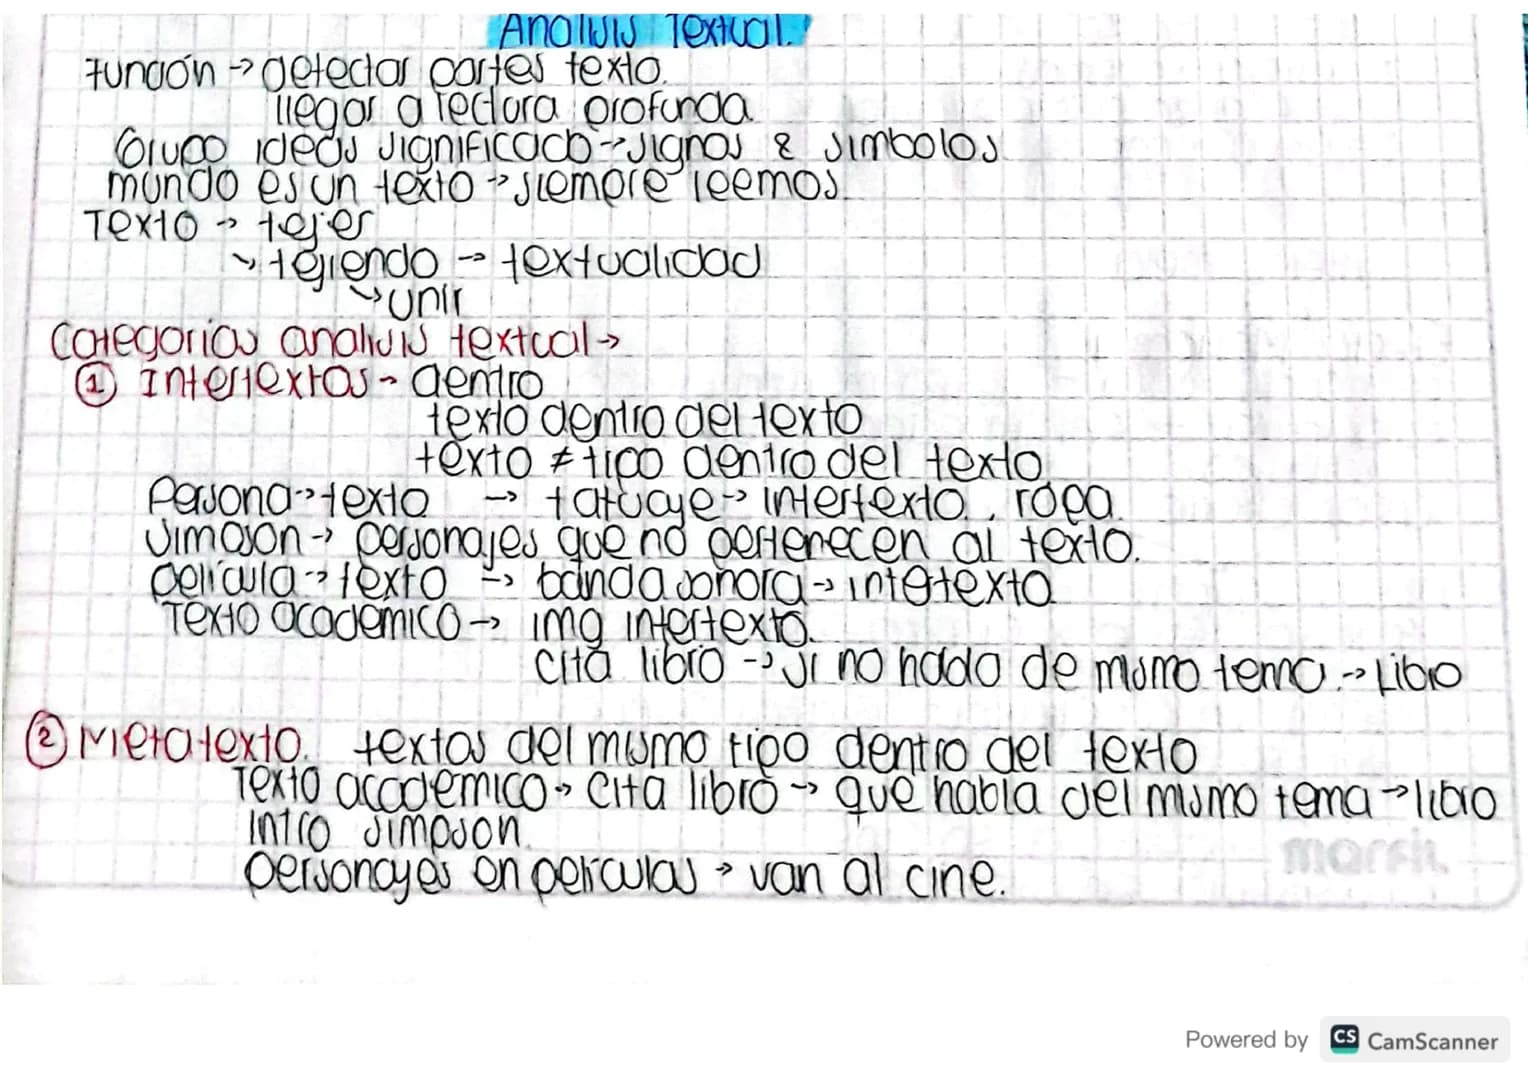 Analisis Textual.
Función → detectar partes texto.
llegar a lectura profunda
Grupo ideas significado → signos & simbolos
mundo es un texto → siempre leemos.
Texto → tejer
↘ tejiendo → textualidad
↘ unir
Categorias analisis textual →
① Intertextos - dentro
texto dentro del texto
texto ≠ tipo dentro del texto
Persona → texto → tatuaje → intertexto, ropa.
Simpson → personajes que no pertenecen al texto.
película → texto → banda sonora → intertexto
Texto academico → img intertexto.
cita libro → si no habla de mismo tema. → Libro
② Metatexto. textos del mismo tipo dentro del texto
Texto academico → cita libro → que habla del mismo tema → libro
Intro Simpson
personajes en peliculas → van al cine.
marsh.
Powered by CS CamScanner